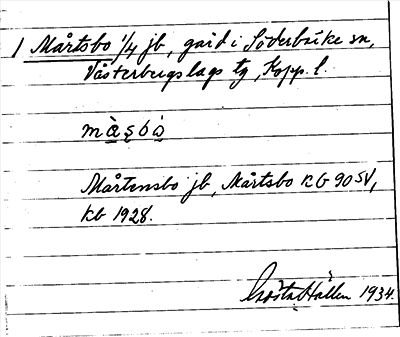 1 Mårtsbo 1/4 jb, gård i Söderbärke sn,
Västerbergslags tg, Kopp. l.
màsbò
Mårtensbo jb, Mårtsbo KG 90 SV,
kb 1928.
Gösta Hallen 1934.